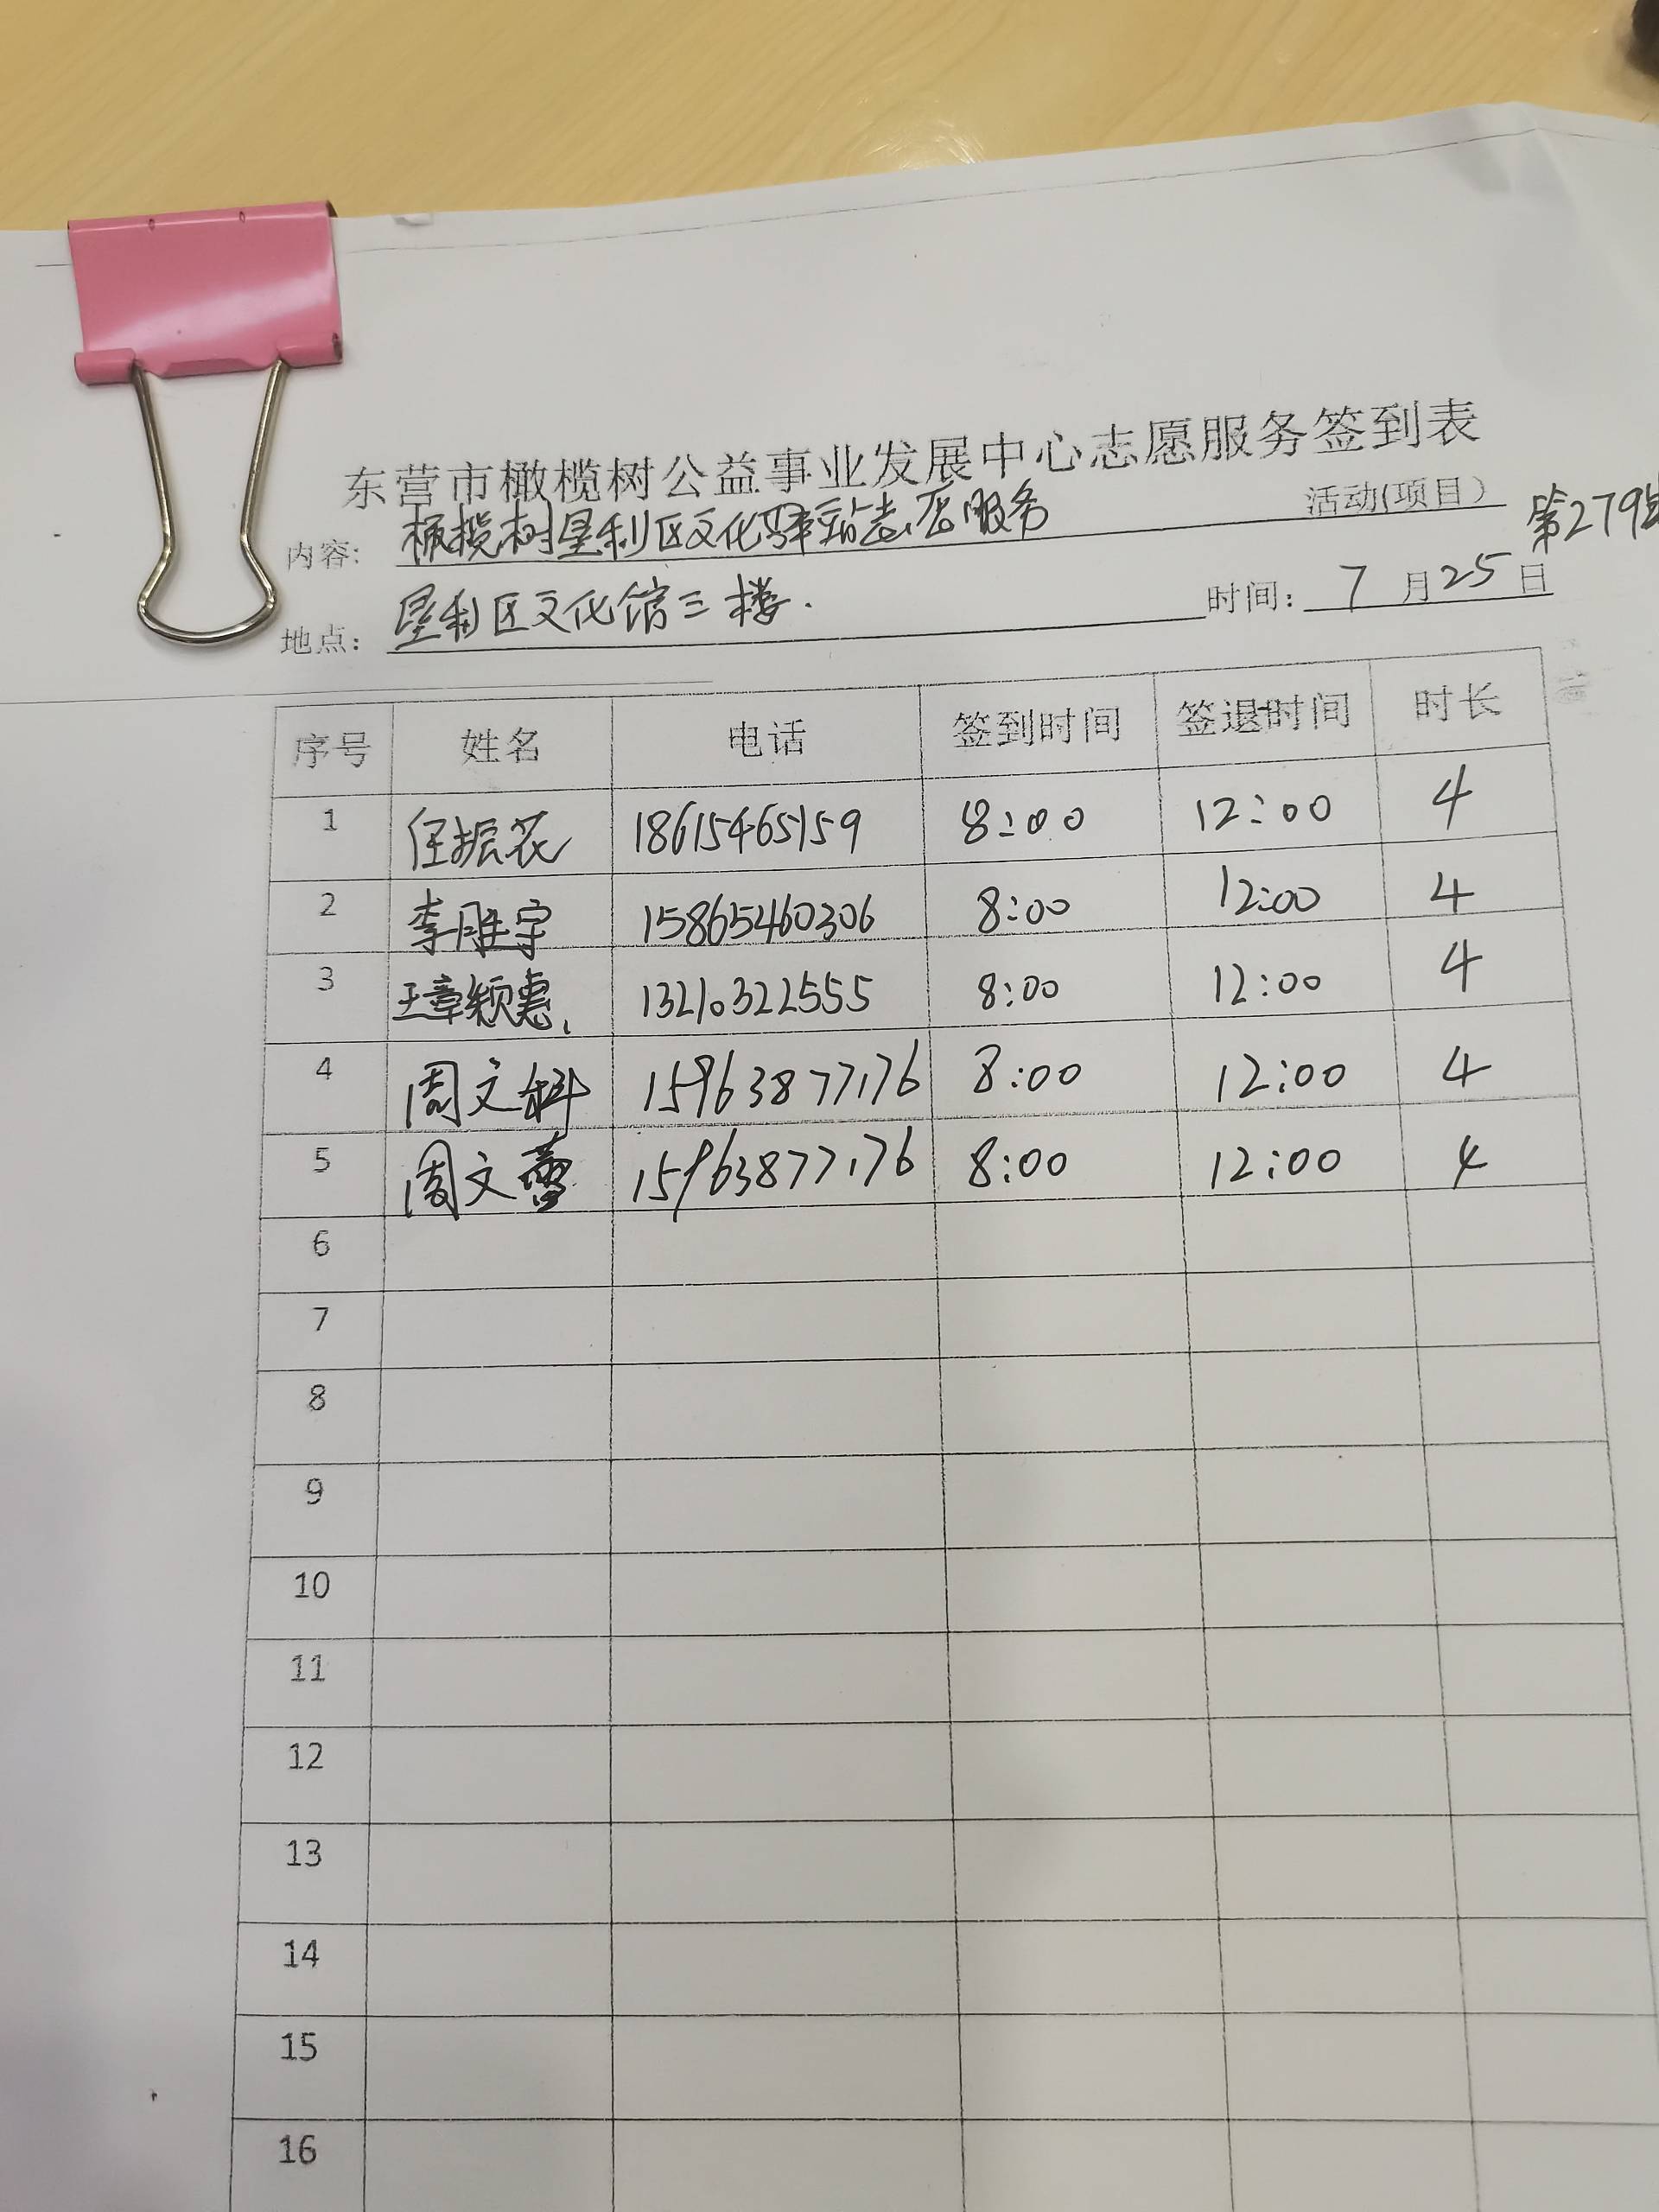 东营市橄榄树公益事业发展中心志愿服务签到表
内容: 橄榄树垦利区文化驿站志愿服务 活动(项目) 第279
地点: 垦利区文化馆三楼. 时间: 7月25日
序号 姓名 电话 签到时间 签退时间 时长
1 任振花 18615465159 8:00 12:00 4
2 李胜宇 15865460306 8:00 12:00 4
3 王章颖惠 13210322555 8:00 12:00 4
4 周文 15963877176 8:00 12:00 4
5 周文蕾 15963877176 8:00 12:00 4
6
7
8
9
10
11
12
13
14
15
16